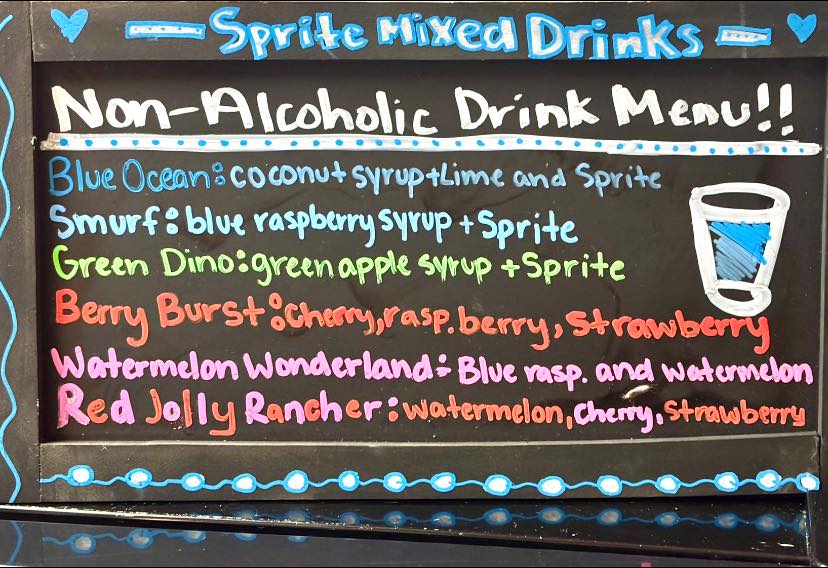 Sprite Mixed Drinks
Non-Alcoholic Drink Menu!!
Blue Ocean: coconut syrup+Lime and Sprite
Smurf: blue raspberry syrup + Sprite
Green Dino: green apple syrup + Sprite
Berry Burst: Cherry, rasp.berry, Strawberry
Watermelon Wonderland: Blue rasp. and watermelon
Red Jolly Rancher: watermelon, cherry, strawberry